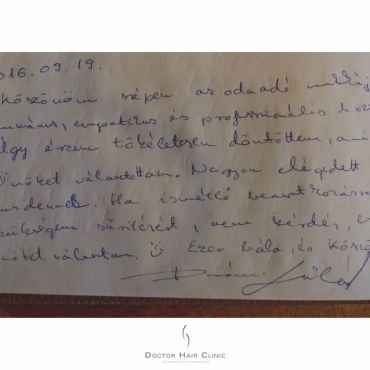 016.09.19.
köszönöm szépen az odaadó
humánus, empatikus és professzionális
úgy érzem tökéletesen döntöttem,
Önöket választottam. Nagyon elégedett
mindennel. Ha ismétlő beavatkozásra
szükségem sűrítésért, nem kérdés,
Önöket választom. Ü Ezer hála, és
DOCTOR HAIR CLINIC